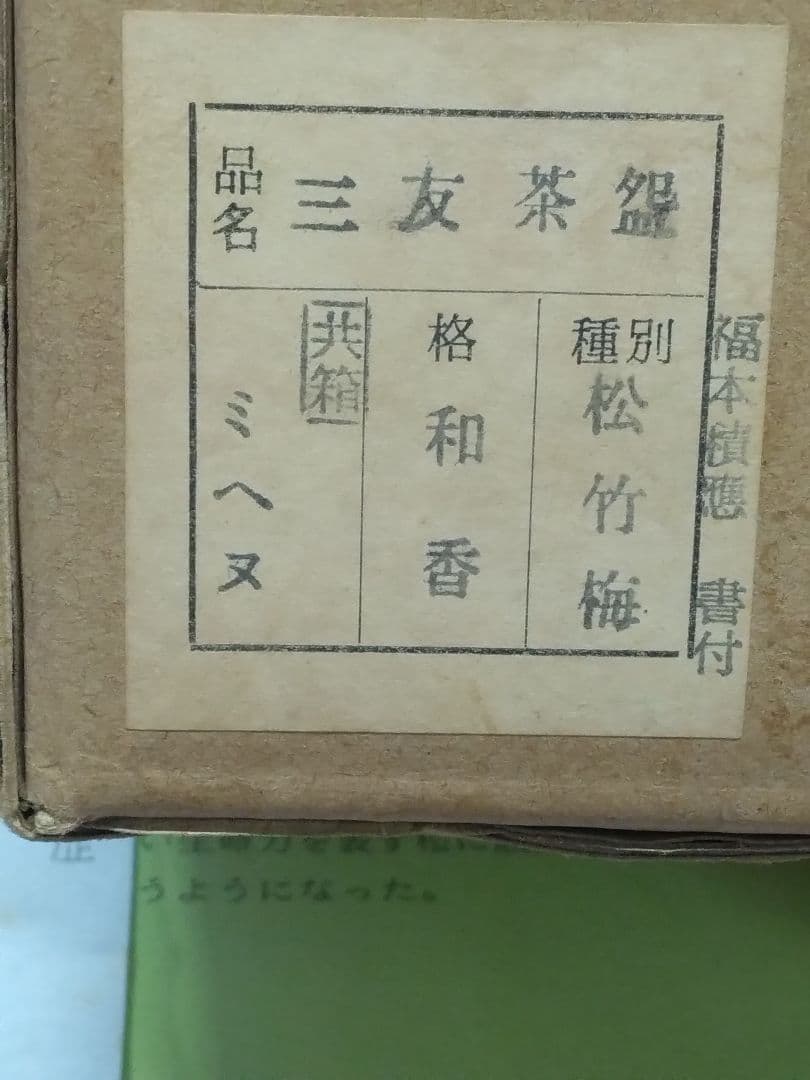 品名 三友茶盌
種別 松竹梅
格 和香
共箱
ミヘヌ
福本積應 書付
うようになった。